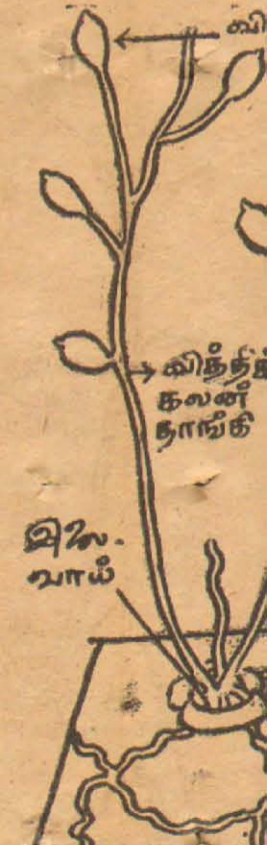 வி
வித்தித்
கலன்
தாங்கி
இலை.
வாய்